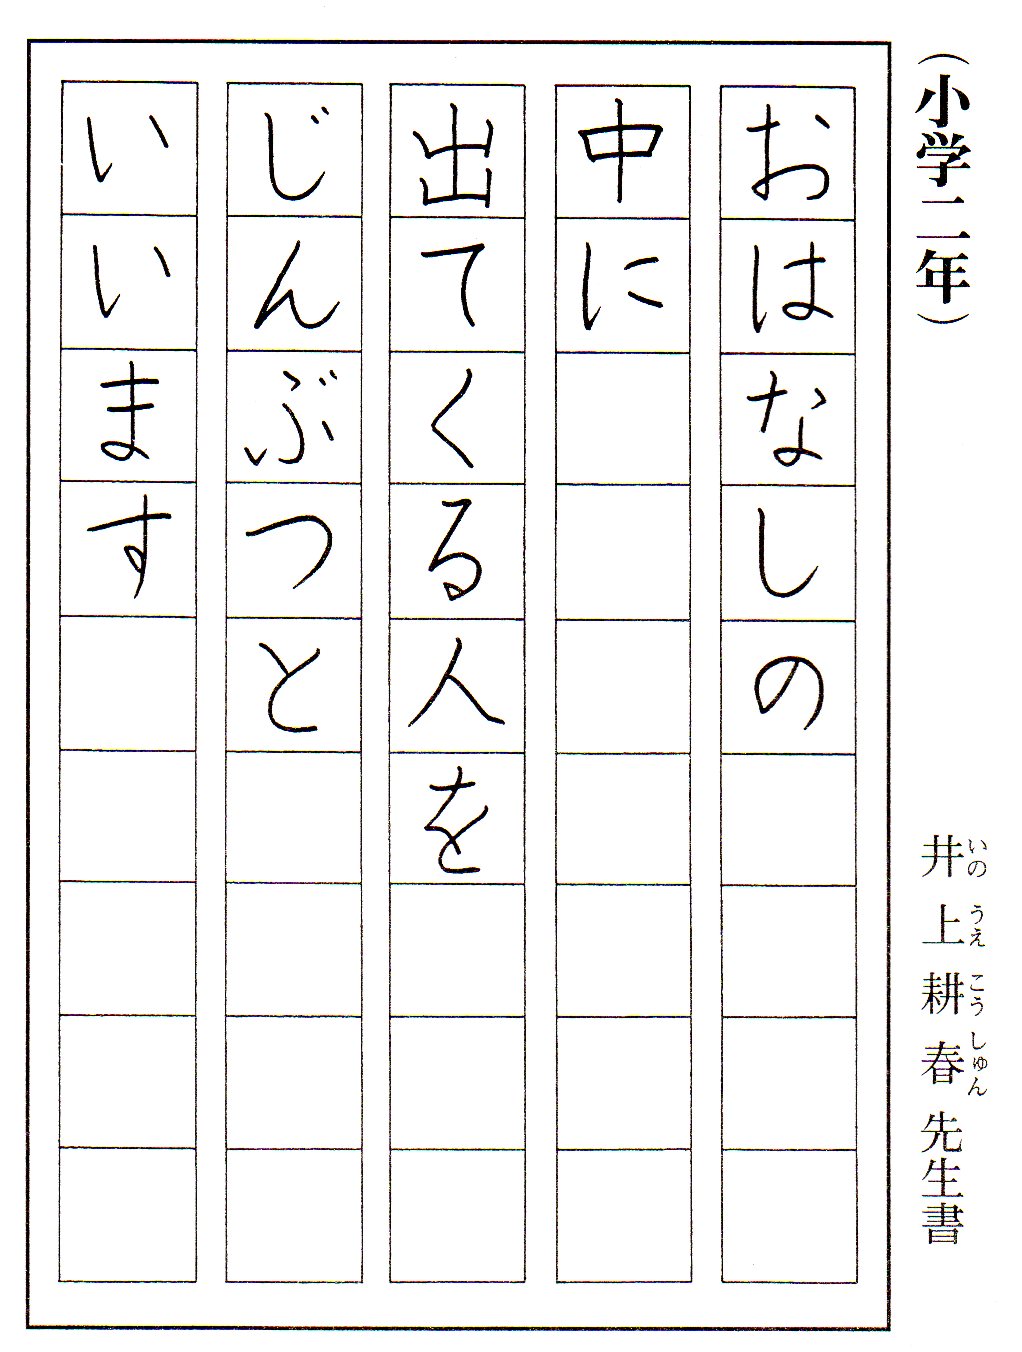 （小学二年）
井上耕春先生書
いのうえこうしゅん
おはなしの
中に
出てくる人を
じんぶつと
いいます